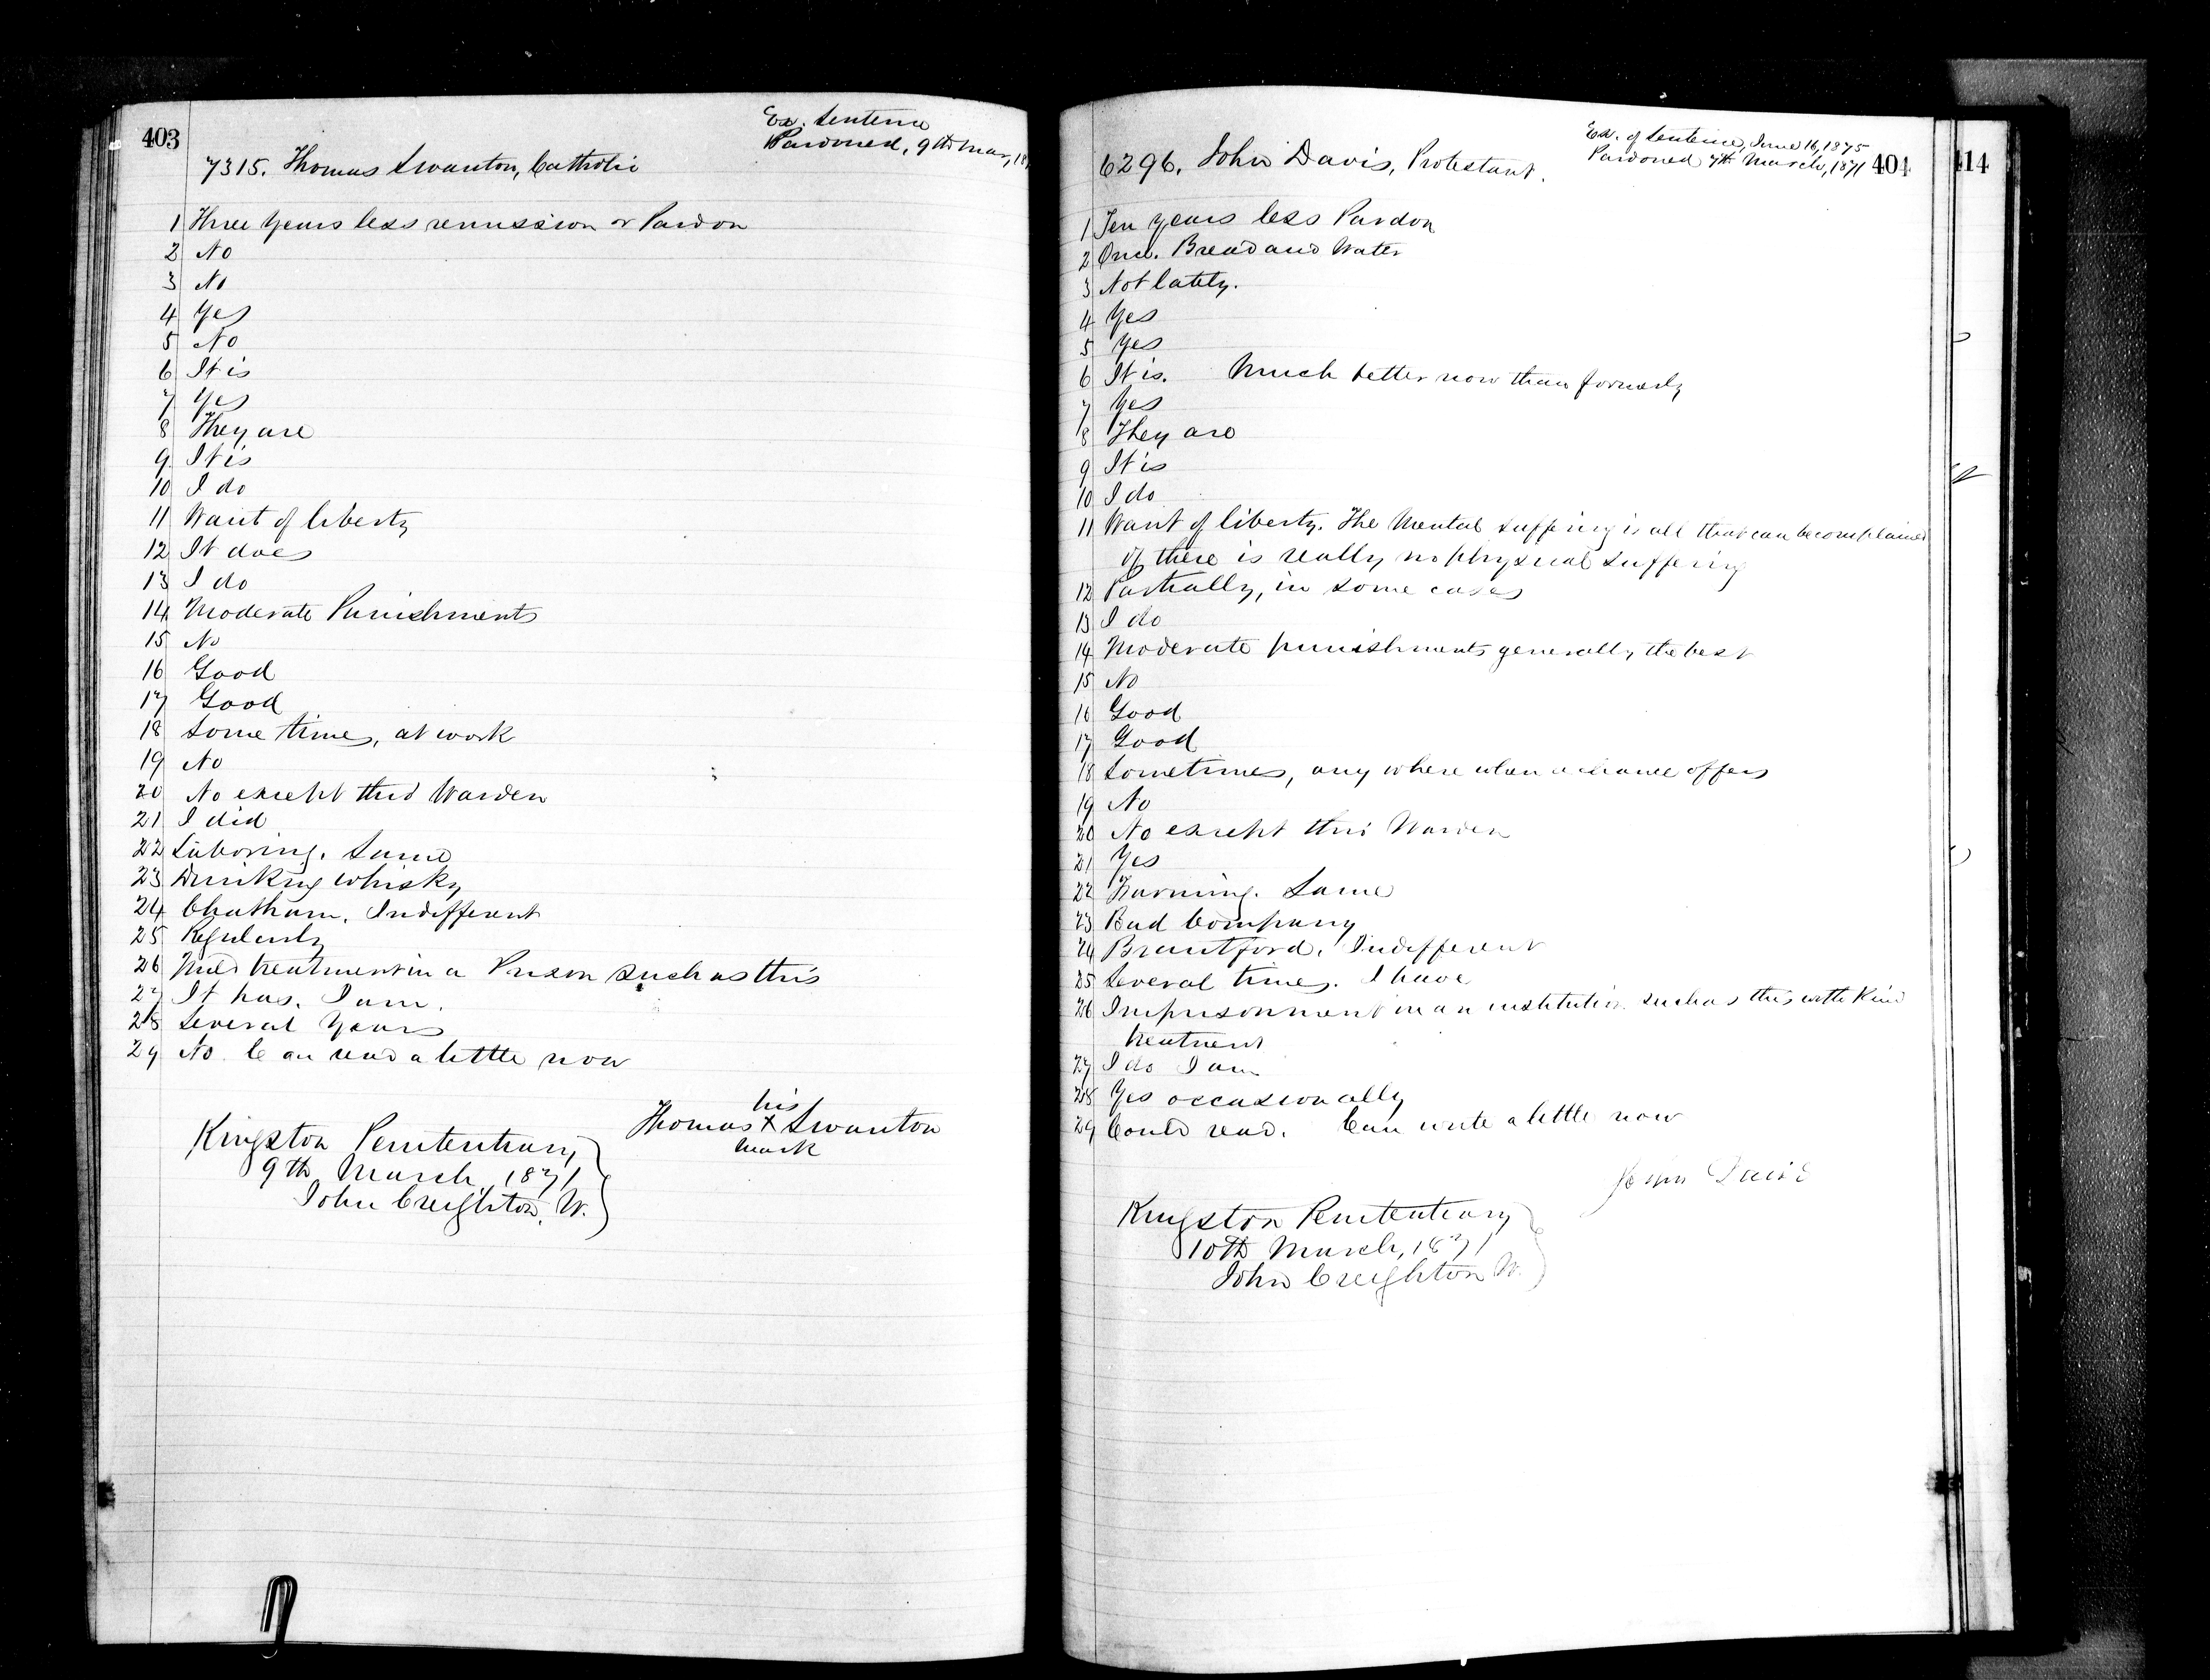 403
Ex. Sentence
Pardoned, 9th Mar, 18
7315. Thomas Swanton, Catholic
1 Three years less remission or Pardon
2 No
3 No
4 Yes
5 No
6 It is
7 Yes
8 They are
9 It is
10 I do
11 Want of liberty
12 It does
13 I do
14 Moderate Punishments
15 No
16 Good
17 Good
18 Some times, at work
19 No
20 No except this Warden
21 I did
22 Laboring. Same
23 Drinking whisky
24 Chatham. Indifferent
25 Regularly
26 Mild treatment in a Prison such as this
27 It has. I am.
28 Several years
29 No. Can read a little now
his
Thomas X Swanton
mark
Kingston Penitentiary
9th March, 1871
John Creighton, W.
Ex. of Sentence, June 16, 1875
Pardoned 7th March, 1871
404
414
6296. John Davis, Protestant.
1 Ten years less Pardon
2 Once. Bread and Water
3 Not lately.
4 Yes
5 Yes
6 It is. Much better now than formerly
7 Yes
8 They are
9 It is
10 I do
11 Want of liberty. The Mental suffering is all that can be complained
of there is really no physical suffering
12 Partially, in some cases
13 I do
14 Moderate punishments generally the best
15 No
16 Good
17 Good
18 Sometimes, any where when a chance offers
19 No
20 No except this Warden
21 Yes
22 Farming. Same
23 Bad Company
24 Brantford. Indifferent
25 Several times. I have
26 Imprisonment in an institution such as this with Kind
treatment
27 I do I am
28 Yes occasionally
29 Could read. Can write a little now
John Davis
Kingston Penitentiary
10th March, 1871
John Creighton W.